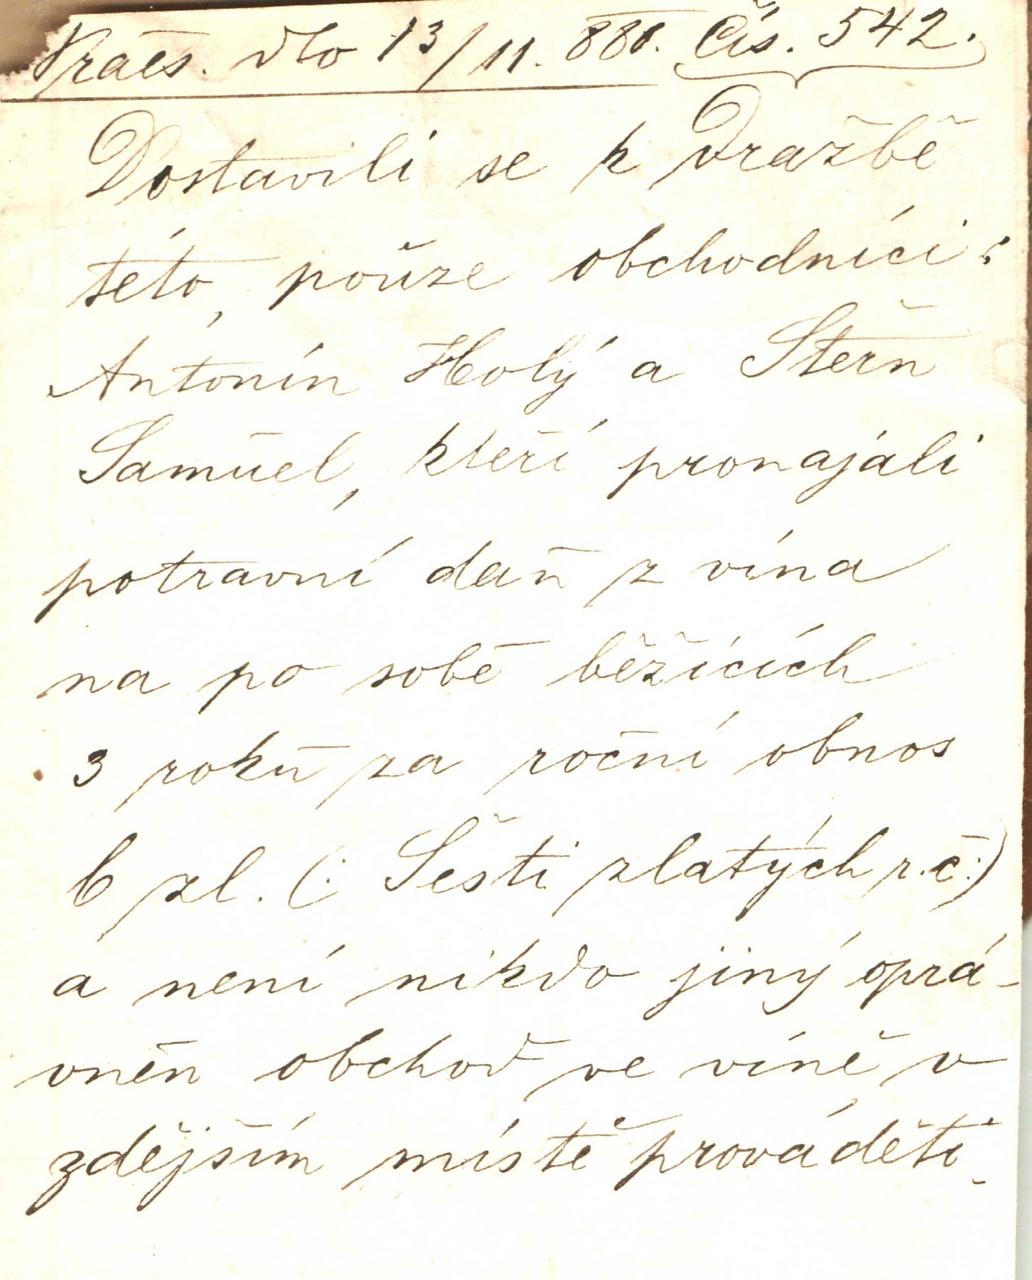 Praes. dto 13/11. 880. Čís. 542.
Dostavili se k dražbě
této, pouze obchodníci:
Antonín Holý a Štern
Samuel, kteří pronajali
potravní daň z vína
na po sobě běžících
3 roků za roční obnos
6 zl. (: Šesti zlatých r. č:)
a není nikdo jiný oprá-
vněn obchod ve víně v
zdějším místě prováděti.